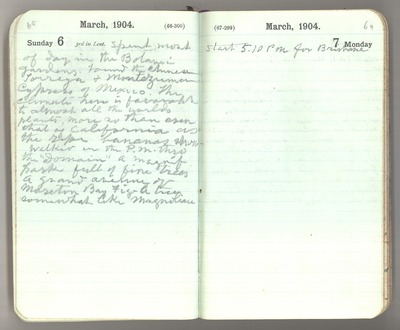 65
March, 1904.
(66-300)
Sunday 6
3rd in Lent.
Spent most
of day in the Botanic
Gardens. Found the Chinese
Torreya & Montezuma
Cypress of Mexico. The
climate here is favorable
to almost all the worlds
plants, more so than even
that of California as
the ripe bananas show
walked in the P.M. thro
the "Domain" a magnif
park full of fine trees
A grand avenue of
Moreton Bay Fig. A tree
somewhat like Magnolia
(67-299)
March, 1904.
7 Monday
Start 5.10 P.M. for Brisbane